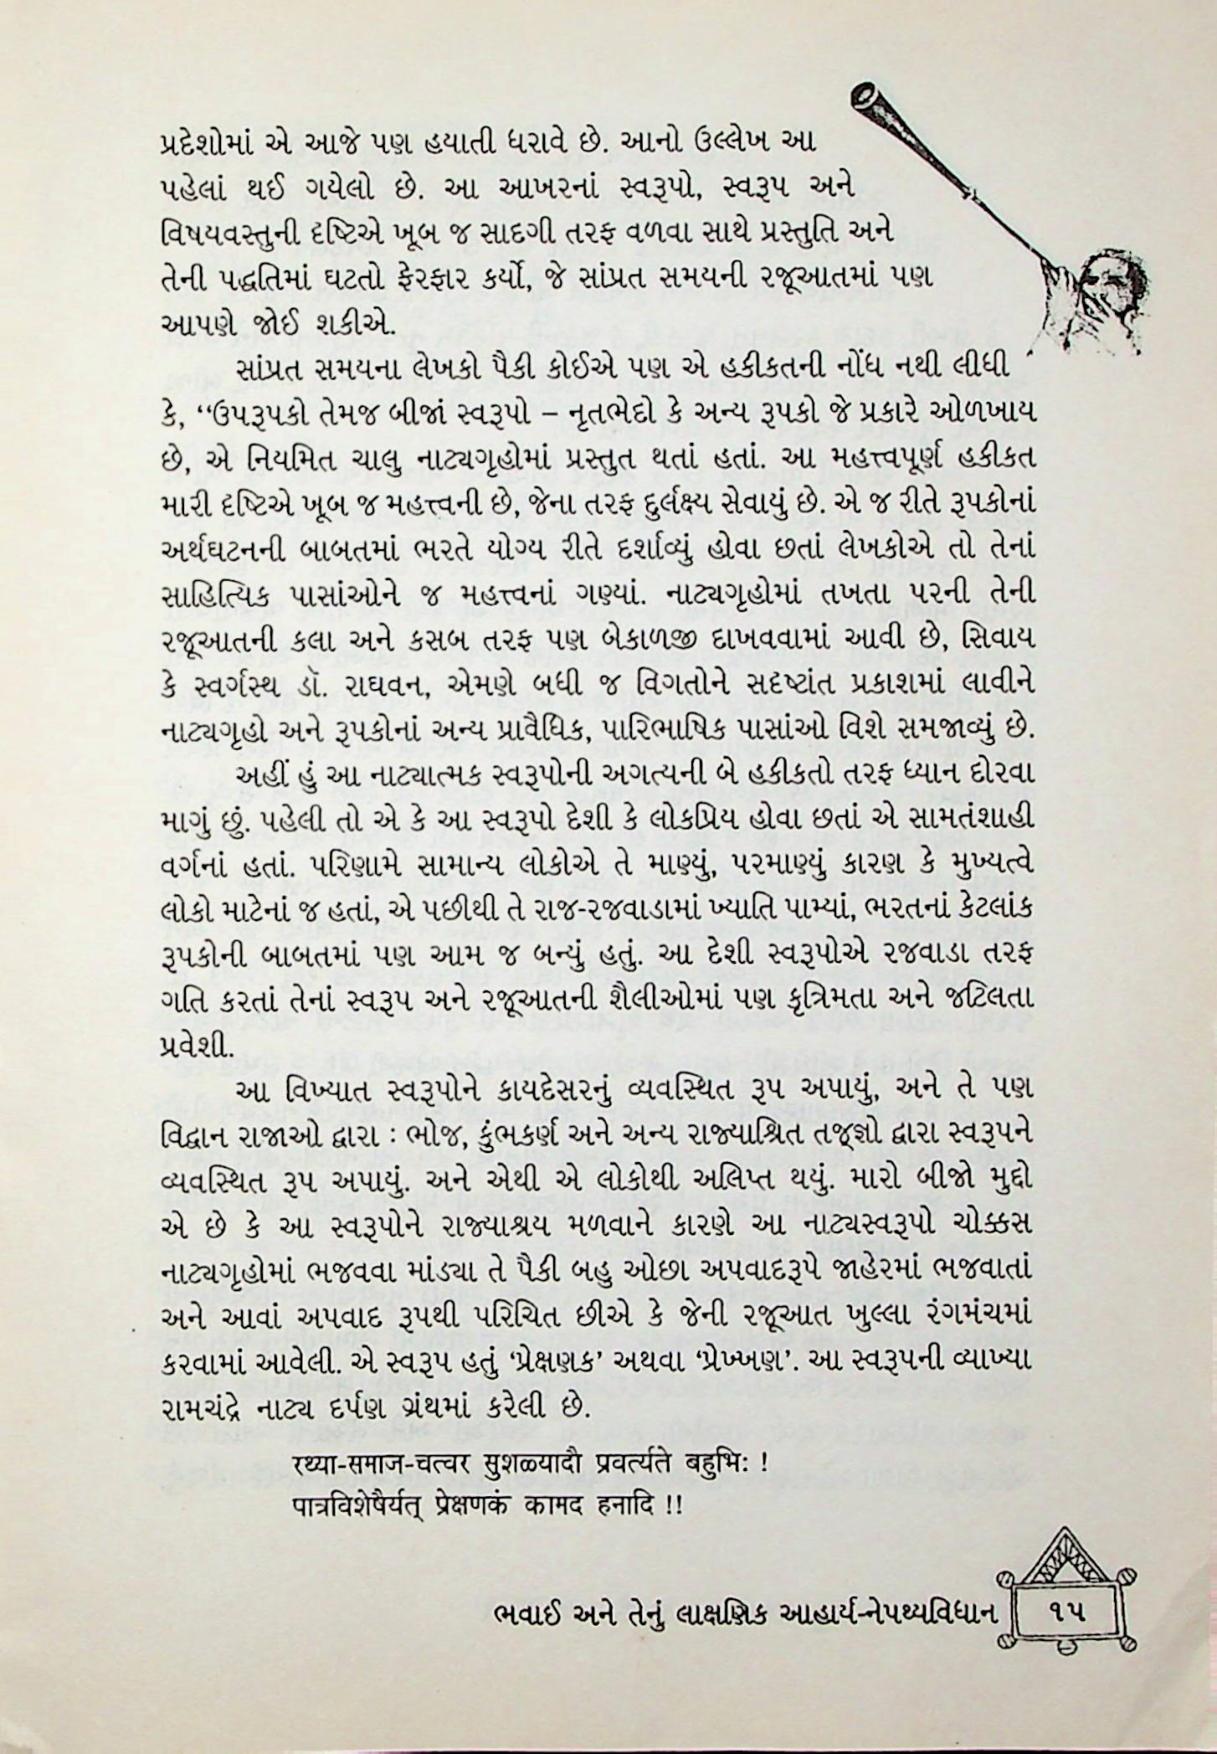 પ્રદેશોમાં એ આજે પણ હયાતી ધરાવે છે. આનો ઉલ્લેખ આ
પહેલાં થઈ ગયેલો છે. આ આખરનાં સ્વરૂપો, સ્વરૂપ અને
વિષયવસ્તુની દૃષ્ટિએ ખૂબ જ સાદગી તરફ વળવા સાથે પ્રસ્તુતિ અને
તેની પદ્ધતિમાં ઘટતો ફેરફાર કર્યો, જે સાંપ્રત સમયની રજૂઆતમાં પણ
આપણે જોઈ શકીએ.
સાંપ્રત સમયના લેખકો પૈકી કોઈએ પણ એ હકીકતની નોંધ નથી લીધી
કે, “ઉપરૂપકો તેમજ બીજાં સ્વરૂપો – નૃતભેદો કે અન્ય રૂપકો જે પ્રકારે ઓળખાય
છે, એ નિયમિત ચાલુ નાટ્યગૃહોમાં પ્રસ્તુત થતાં હતાં. આ મહત્ત્વપૂર્ણ હકીકત
મારી દૃષ્ટિએ ખૂબ જ મહત્ત્વની છે, જેના તરફ દુર્લક્ષ્ય સેવાયું છે. એ જ રીતે રૂપકોનાં
અર્થઘટનની બાબતમાં ભરતે યોગ્ય રીતે દર્શાવ્યું હોવા છતાં લેખકોએ તો તેનાં
સાહિત્યિક પાસાંઓને જ મહત્ત્વનાં ગણ્યાં. નાટ્યગૃહોમાં તખતા પરની તેની
રજૂઆતની કલા અને કસબ તરફ પણ બેકાળજી દાખવવામાં આવી છે, સિવાય
કે સ્વર્ગસ્થ ડૉ. રાઘવન, એમણે બધી જ વિગતોને સદૃષ્ટાંત પ્રકાશમાં લાવીને
નાટ્યગૃહો અને રૂપકોનાં અન્ય પ્રાવૈધિક, પારિભાષિક પાસાંઓ વિશે સમજાવ્યું છે.
અહીં હું આ નાટ્યાત્મક સ્વરૂપોની અગત્યની બે હકીકતો તરફ ધ્યાન દોરવા
માગું છું. પહેલી તો એ કે આ સ્વરૂપો દેશી કે લોકપ્રિય હોવા છતાં એ સામતંશાહી
વર્ગનાં હતાં. પરિણામે સામાન્ય લોકોએ તે માણ્યું, પરમાણ્યું કારણ કે મુખ્યત્વે
લોકો માટેનાં જ હતાં, એ પછીથી તે રાજ-રજવાડામાં ખ્યાતિ પામ્યાં, ભરતનાં કેટલાંક
રૂપકોની બાબતમાં પણ આમ જ બન્યું હતું. આ દેશી સ્વરૂપોએ રજવાડા તરફ
ગતિ કરતાં તેનાં સ્વરૂપ અને રજૂઆતની શૈલીઓમાં પણ કૃત્રિમતા અને જટિલતા
પ્રવેશી.
આ વિખ્યાત સ્વરૂપોને કાયદેસરનું વ્યવસ્થિત રૂપ અપાયું, અને તે પણ
વિદ્વાન રાજાઓ દ્વારા : ભોજ, કુંભકર્ણ અને અન્ય રાજ્યાશ્રિત તજ્જ્ઞો દ્વારા સ્વરૂપને
વ્યવસ્થિત રૂપ અપાયું. અને એથી એ લોકોથી અલિપ્ત થયું. મારો બીજો મુદ્દો
એ છે કે આ સ્વરૂપોને રાજ્યાશ્રય મળવાને કારણે આ નાટ્યસ્વરૂપો ચોક્કસ
નાટ્યગૃહોમાં ભજવવા માંડ્યા તે પૈકી બહુ ઓછા અપવાદરૂપે જાહેરમાં ભજવાતાં
અને આવાં અપવાદ રૂપથી પરિચિત છીએ કે જેની રજૂઆત ખુલ્લા રંગમંચમાં
કરવામાં આવેલી. એ સ્વરૂપ હતું ‘પ્રેક્ષણક’ અથવા ‘પ્રેખ્ખણ’. આ સ્વરૂપની વ્યાખ્યા
રામચંદ્રે નાટ્ય દર્પણ ગ્રંથમાં કરેલી છે.
रथ्या-समाज-चत्वर सुशळ्यादौ प्रवर्त्यते बहुभिः !
पात्रविशेषैर्यत् प्रेक्षणकं कामद हनादि !!
ભવાઈ અને તેનું લાક્ષણિક આહાર્ય-નેપથ્યવિધાન
૧૫